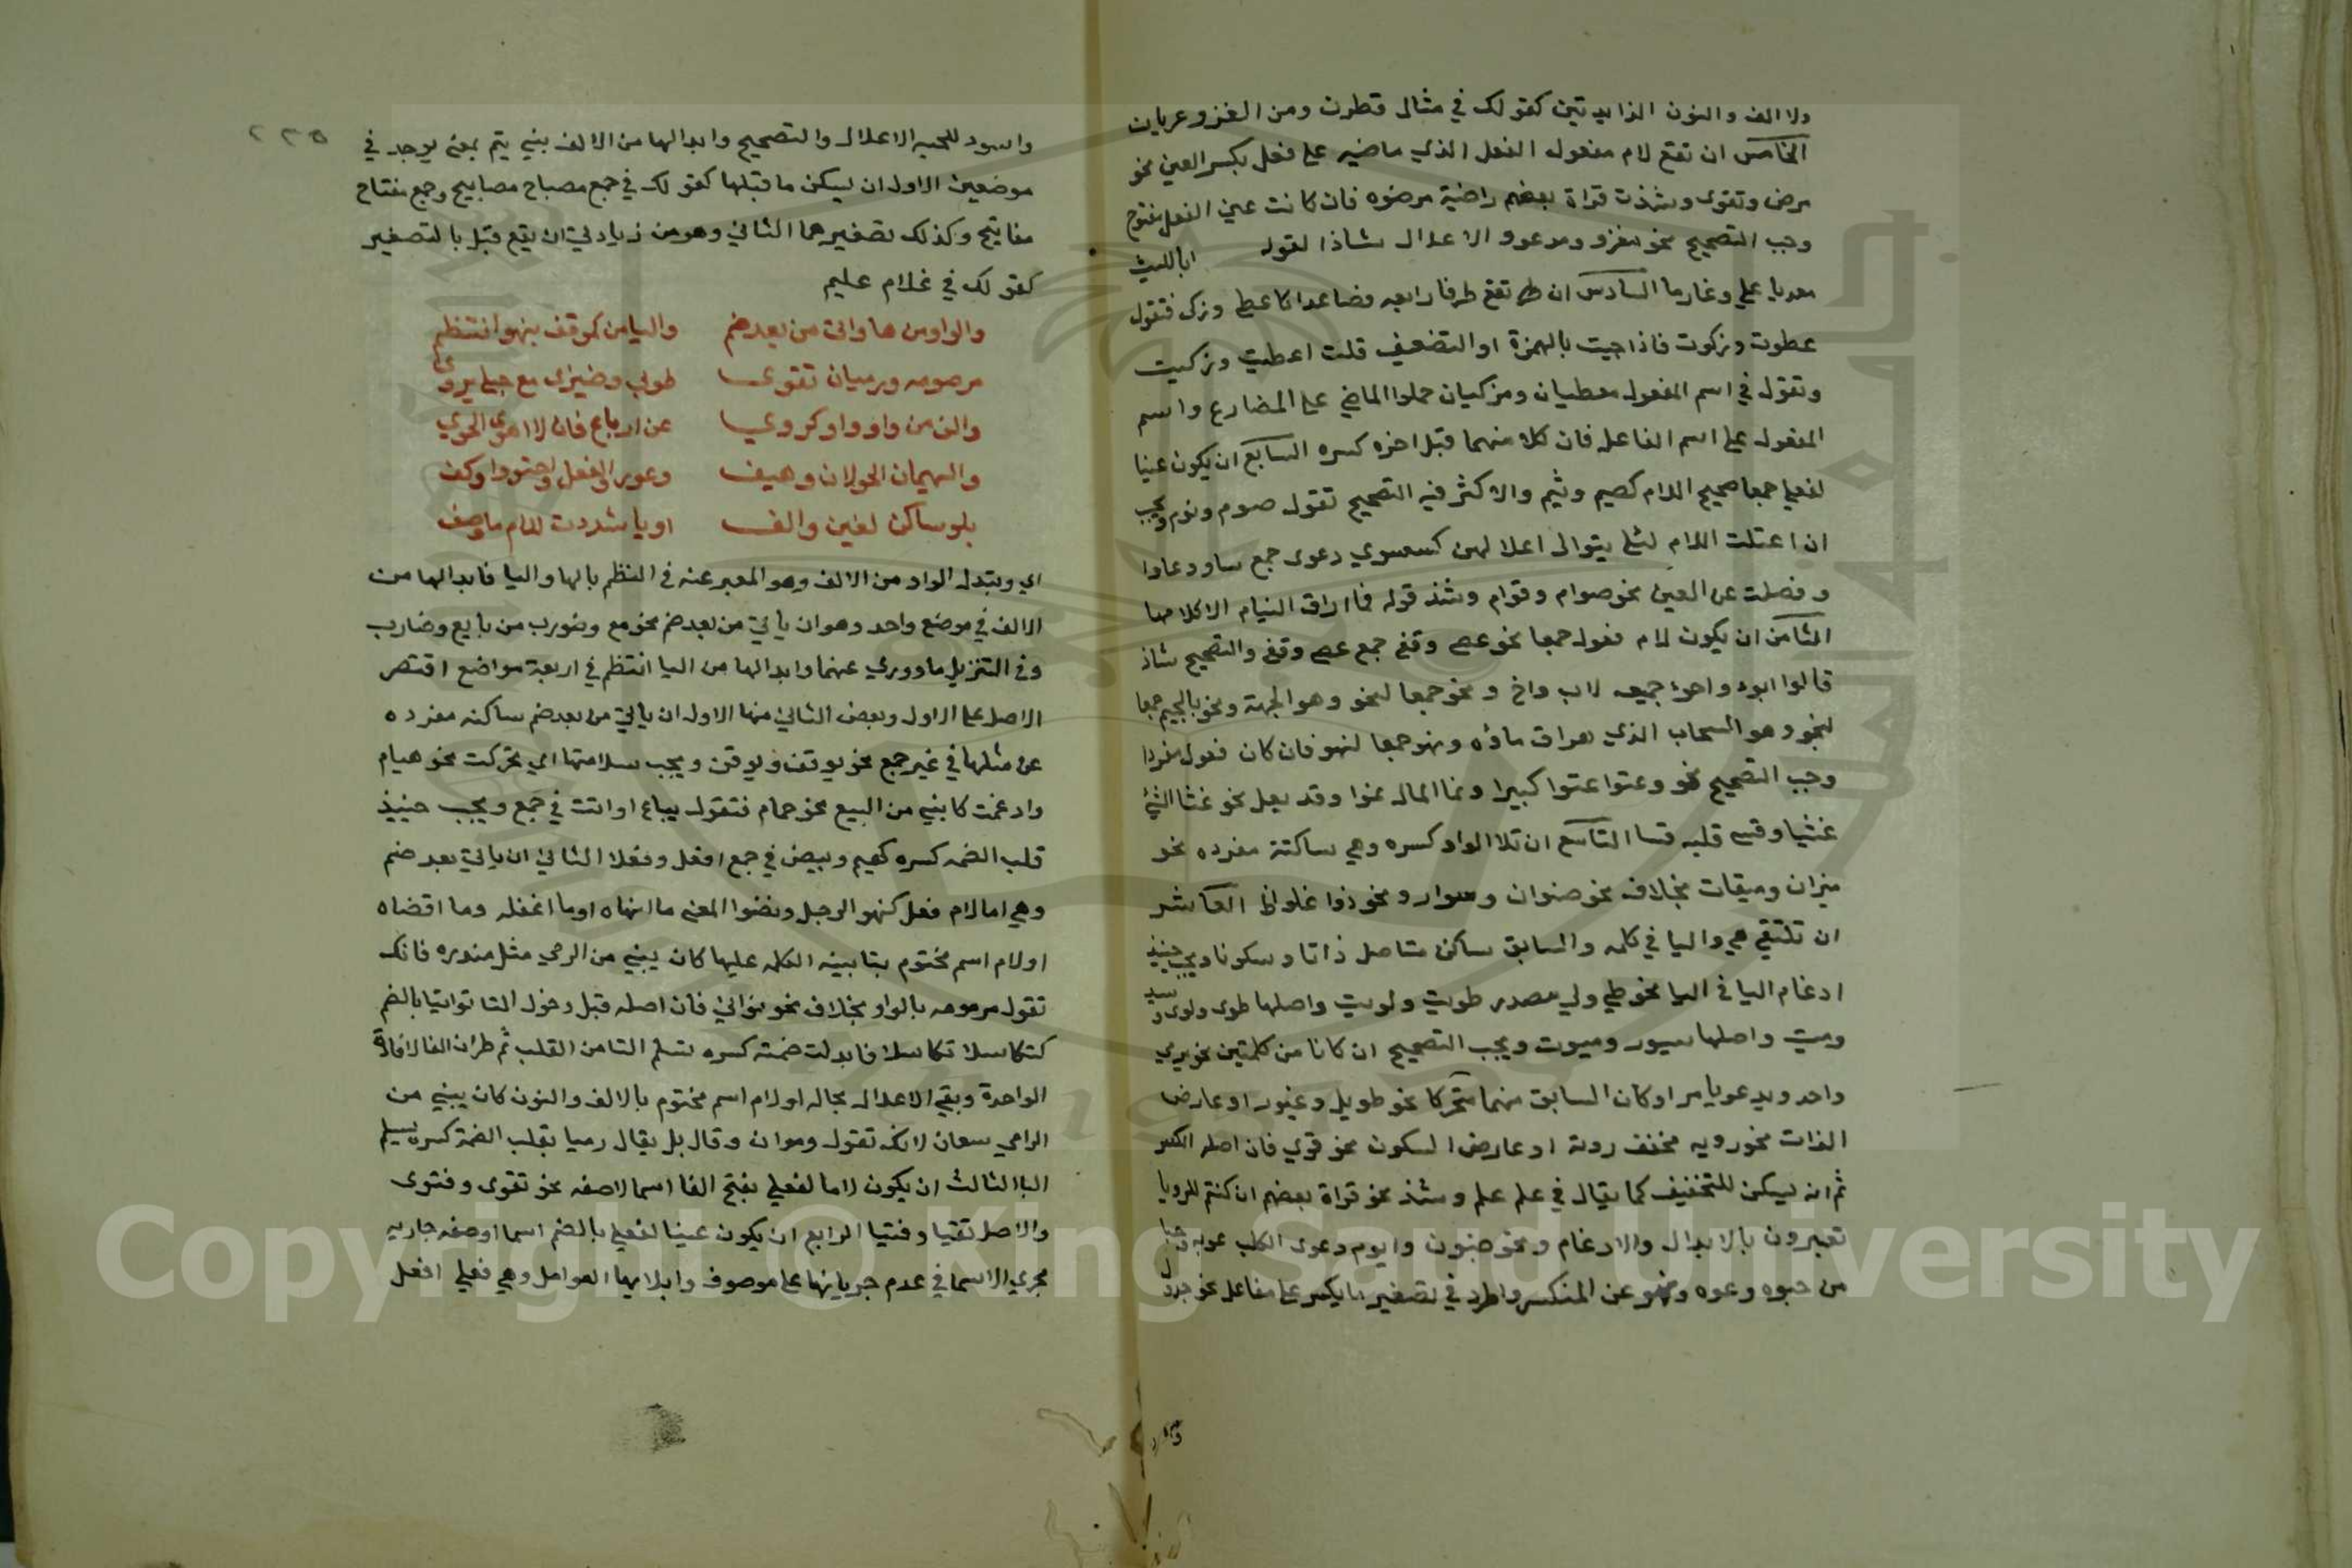 ولا الف والنون الزايدتين كقولك في مثال قطرن ومن الغزو عريان
الخامس ان تقع لام مفعول الفعل الذي ماضيه على فعل بكسر العين نحو
مرض وتقوى وشذت قراة بعضهم راضية مرضوه فان كانت عين الفعل مفتوح
وجب التصحيح نحو مغزو ومدعوو الاعلال شاذا لقوله انا الليث
معديا علي وغاريا السادس ان تقع طرفا رابعه فصاعدا كاعطى وزكى فتقول
عطوت وزكوت فاذا جيت بالهمزة او التضعيف قلت اعطيت وزكيت
وتقول في اسم المفعول معطيان ومزكيان حملوا الماضي على المضارع واسم
المفعول على اسم الفاعل فان كلا منهما قبل اخره كسره السابع ان يكون عينا
لفعل جمعا صحيح اللام كصيم ونيم والاكثر فيه التصحيح تقول صوم ونوم ويجب
ان اعتلت اللام لئلا يتوالى اعلالين كسسوي دعوى جمع ساو وعاوا
وفصلت عن العين نحو صوام وقوام وشذ قوله فما اراق النيام الا كلامها
الثامن ان يكون لام فعول جمعا نحو عصي وقفي جمع عصى وقفى والتصحيح شاذ
قالوا ابوه واخوه جميعه لاب واخ و نحو جمعا لنحو وهو الجهة ونحو بالجيم جمعا
لنجو وهو السحاب الذي هراق ماؤه ونهو جمعا لنهو فان كان فعول مفردا
وجب التصحيح نحو وعتوا عتوا كبيرا ونما المال نموا وقد يعل نحو عثا الشئ
عثيا وقسى قلبه قسا التاسع ان تلا الواو كسره وهي ساكنة مفرده نحو
ميزان وميقات بخلاف نحو صنوان وسوار ونحو ذوا غلواظ العاشر
ان تلتقي هي واليا في كلمه والسابق ساكن متاصل ذاتا وسكونا ويجب حينيذ
ادغام اليا في اليا نحو طي ولي مصدر طويت ولويت واصلها طوى ولوى وسيد
وميت واصلها سيود وميوت ويجب التصحيح ان كانا من كلمتين نحو يرمي
واحد ويدعو ياسر او كان السابق منهما متحركا نحو طويل وغيور او عارض
الذات نحو رويه مخفف روية او عارض السكون نحو قوي فان اصله الكسر
ثم انه يسكن للتخفيف كما يقال في علم علم وشذ نحو قراة بعضهم ان كنتم للرويا
تعبرون بالابدال والادغام ونحو ضيون وايوم وعوى الكلب عويه
من حبوه وعوه ونهو عن المنكر واطرد في تصغير ما يكسر على مفاعل نحو جدول
٢٢٥
واسود للحيه الاعلال والتصحيح وابدالها من الالف بني يتم بمعنى يوجد في
موضعين الاول ان يسكن ما قبلها كقولك في جمع مصباح مصابيح وجمع مفتاح
مفاتيح وكذلك تصغيرهما الثاني وهو من زيادتي ان يقع قبل يا التصغير
كقولك في غلام عليم
والواو من ها وان من بعد ضم واليا من كموقف بنهو انتظم
مرصومه ورميان تقوى طوبى وضيزى مع حبلى يروى
والف من واو واو كروي عن ارباع فان لا اهوى الحوي
والهيمان الجولان وهيف وعور الفعل واحتووا وكف
بلو ساكن لغين والف او يا شددت لام ما وصف
اي وتبدل الواو من الالف وهو المعبر عنه في النظم بالها واليا فابدالها من
الالف في موضع واحد وهو ان ياتي من بعد ضم نحو مع وضورب من بايع وضارب
وفي التنزيل ما ووري عنهما وابدالها من اليا انتظم في اربعة مواضع اقتصر
الاصل على الاول وبعض الثاني منها الاول ان ياتي من بعد ضم ساكنه مفرده
عن مثلها في غير جمع نحو يوقف ويوقن ويجب سلامتها اي تحركت نحو هيام
وادغمت كابني من البيع نحو حمام فتقول بياع او اتت في جمع ويجب حينيذ
قلب الضمه كسره كهيم وبيض في جمع افعل وفعلا الثاني ان ياتي بعد ضم
وهي اما لام فعل كنهو الرجل وقضوا المعنى ما انهاه او ما اعقله وما اقضاه
او لام اسم مختوم بتا بنيه الكلمه عليها كان يبني من الرمي مثل مقدره فانك
تقول مرموه بالواو بخلاف نحو توانى فان اصله قبل دخول التا توانيا بالضم
كتكاسلا تكاسلا فابدلت ضمته كسره لتسلم اليا من القلب ثم طرا التا لافادة
الواحدة وبقي الاعلال بحاله او لام اسم مختوم بالالف والنون كان يبني من
الرامي سبعان لانك تقول رموان وقال بل يقال رميا بقلب الضمة كسره لتسلم
اليا الثالث ان يكون لاما لفعلى بفتح الفا اسما لا صفه نحو تقوى وفتوى
والاصل تقيا وفتيا الرابع ان يكون عينا لفعلى بالضم اسما او صفه جاريه
مجرى الاسما في عدم جريانها على موصوف وايلايها العوامل وهي فعلى افعل
Copyright © King Saud University